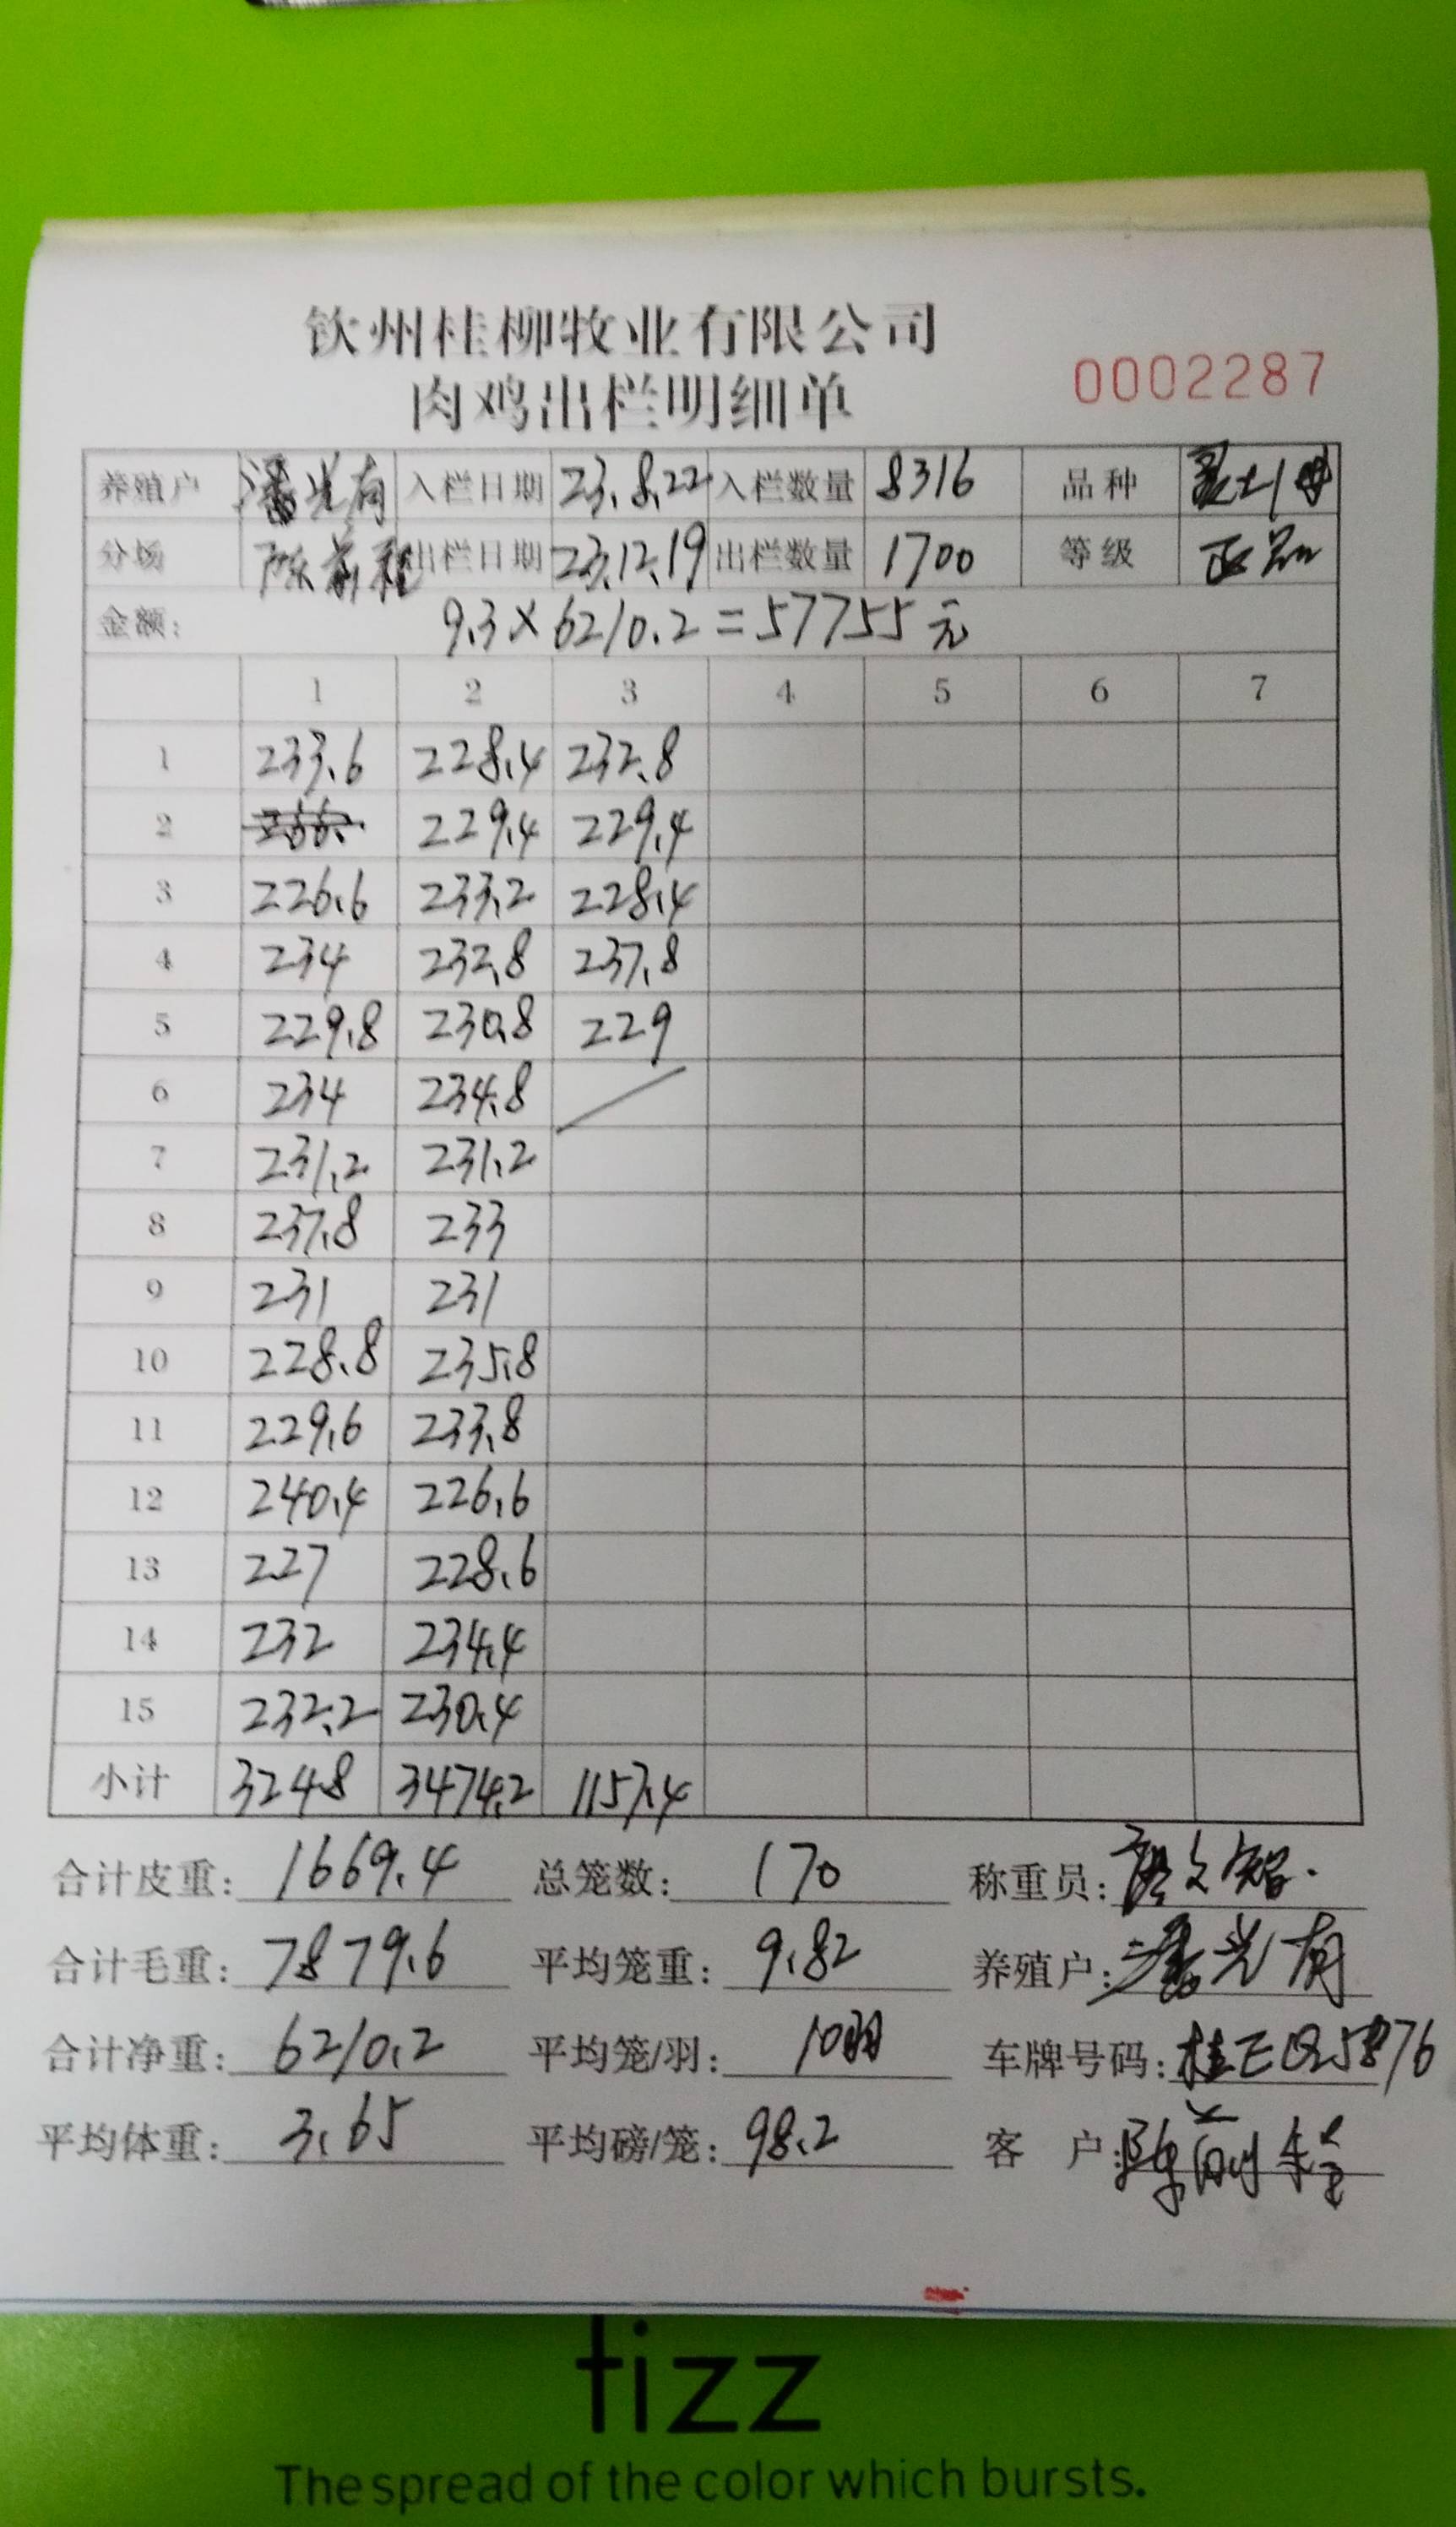 钦州桂柳牧业有限公司
肉鸡出栏明细单
0002287
养殖户 潘光有 入栏日期 23.8.22 入栏数量 8316 品种
分场 陈前程 出栏日期 23.12.19 出栏数量 1700 等级 正品
金额: 9.3×6210.2=57755元
1 2 3 4 5 6 7
1 233.6 228.4 232.8
2 229.4 229.4
3 226.6 233.2 228.4
4 234 232.8 237.8
5 229.8 230.8 229
6 234 234.8
7 231.2 231.2
8 237.8 233
9 231 231
10 228.8 235.8
11 229.6 233.8
12 240.4 226.6
13 227 228.6
14 232 234.4
15 232.2 230.4
小计 3248 3474.2 1157.4
合计皮重: 1669.4 总笼数: 170 称重员:
合计毛重: 7879.6 平均笼重: 9.82 养殖户: 潘光有
合计净重: 6210.2 平均笼/羽: 10羽 车牌号码:
平均体重: 3.65 平均磅/笼: 98.2 客户:
fizz
The spread of the color which bursts.